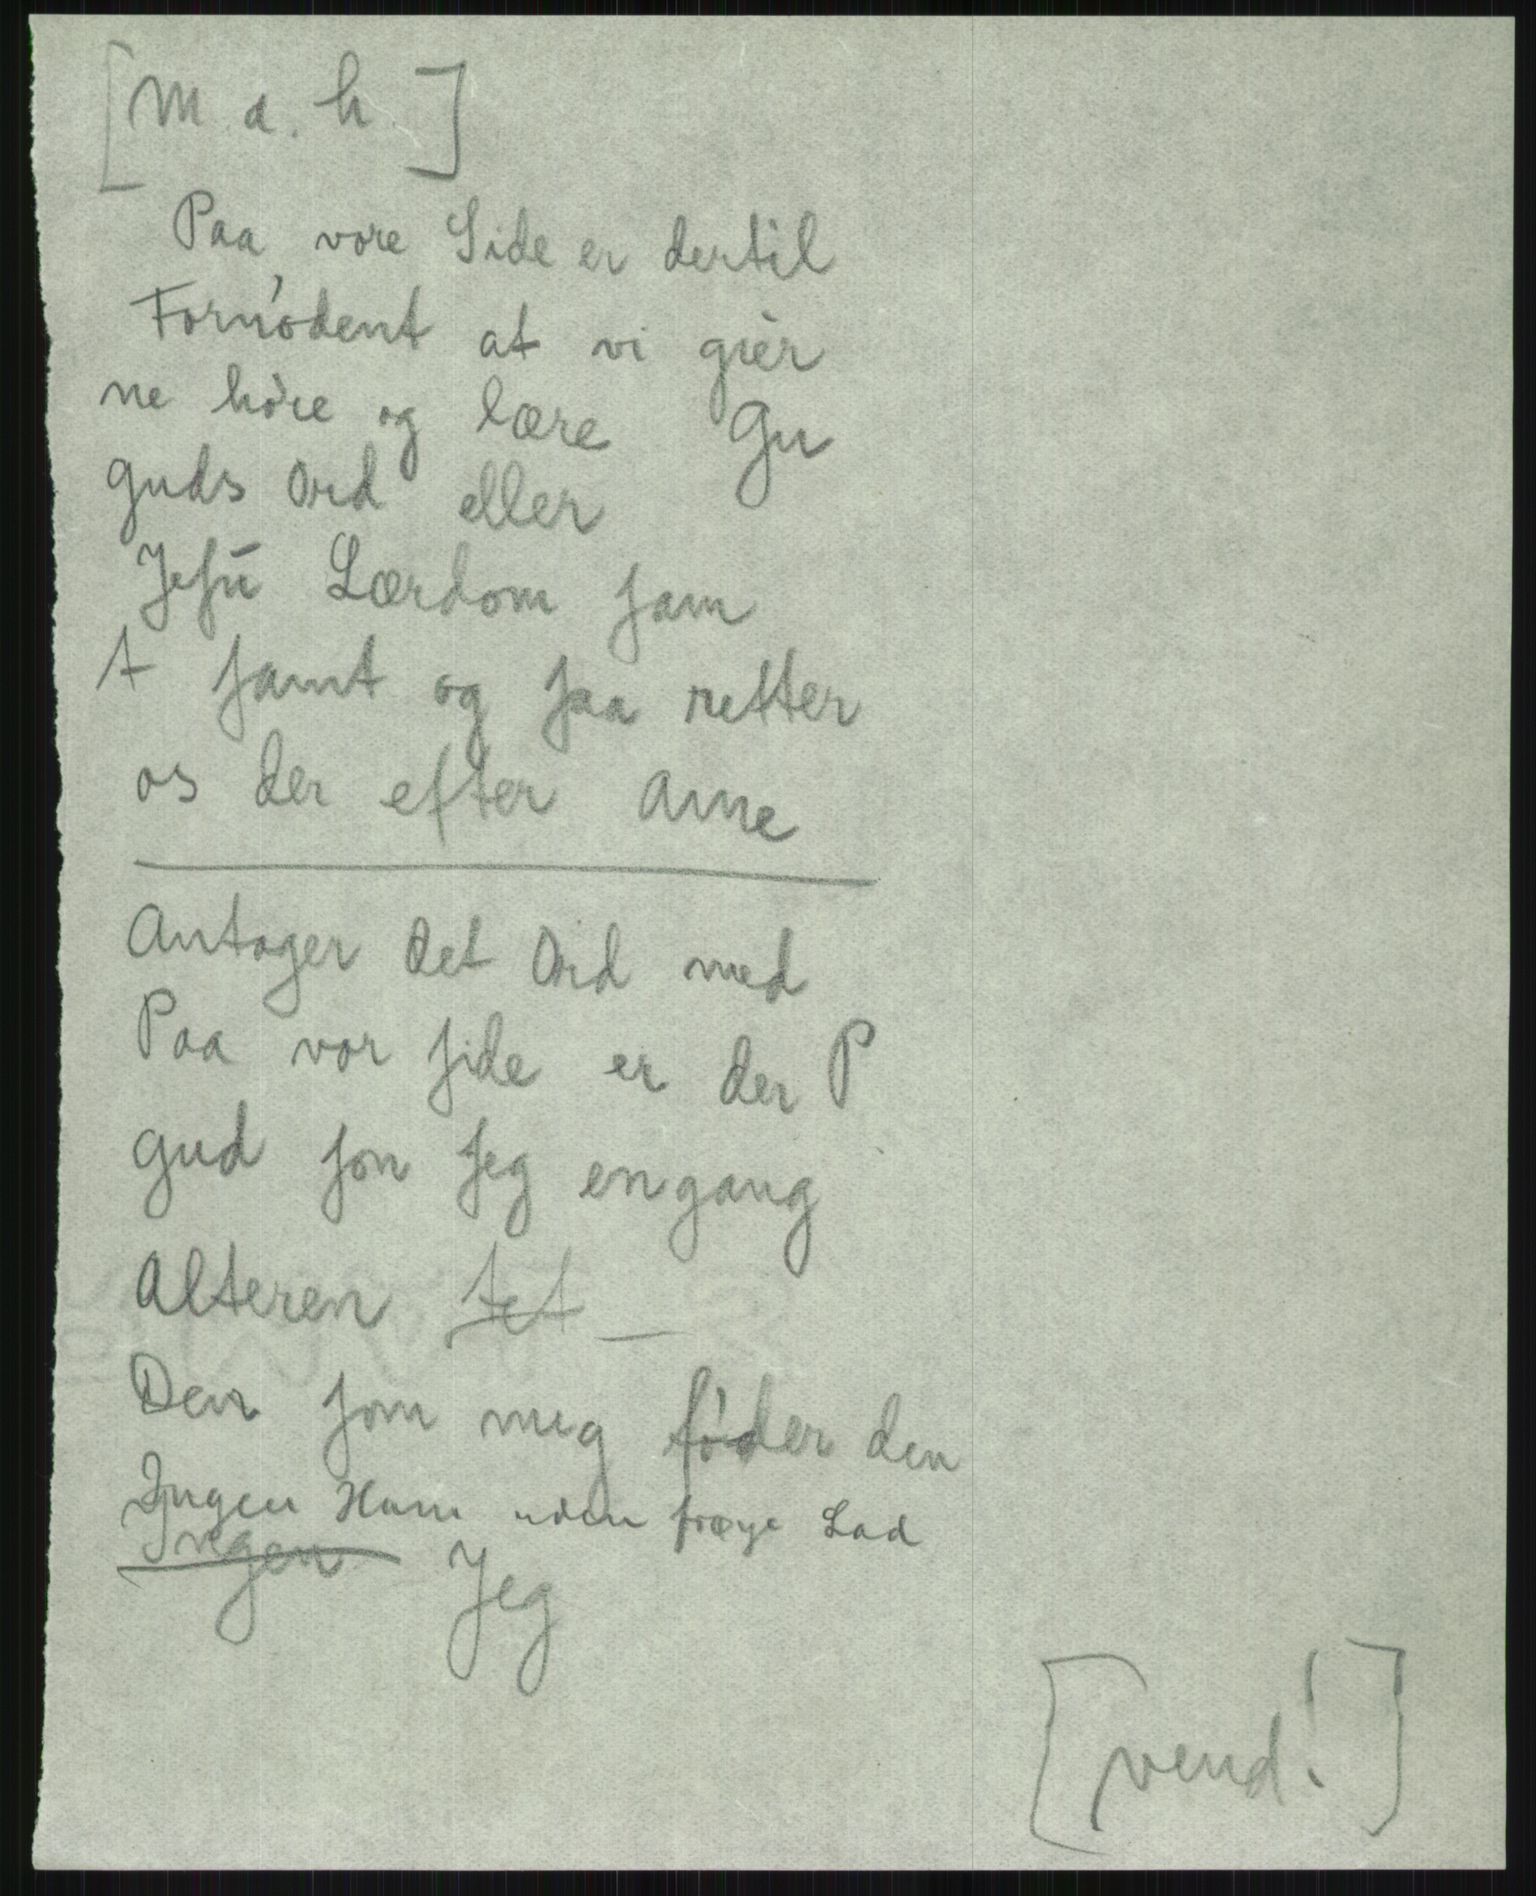 [M. a. h.]
Paa vore Side er dertil
Fornódent at vi gièr
ne hóre og lære Gu
guds Ord eller
Jesū Lærdom sam
t samt og saa retter
os der efter Ame
Antager det Ord med
Paa vor side er der P
gud son Jeg engang
Alteren tet
Den som mig föder den
Ingen Ham uden Lad
Ingen Jeg
[vend!]